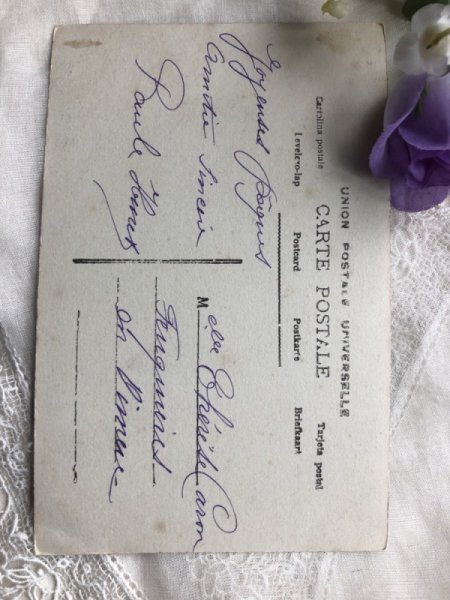 UNION POSTALE UNIVERSELLE
CARTE POSTALE
Cartolina postale
Tarjeta postal
Levelezo-lap Postcard Postkarte Briefkaart
Joyeuses Pâques
Amitié Sincère
Paule
Melle Thérèse Caron
en Vimeu